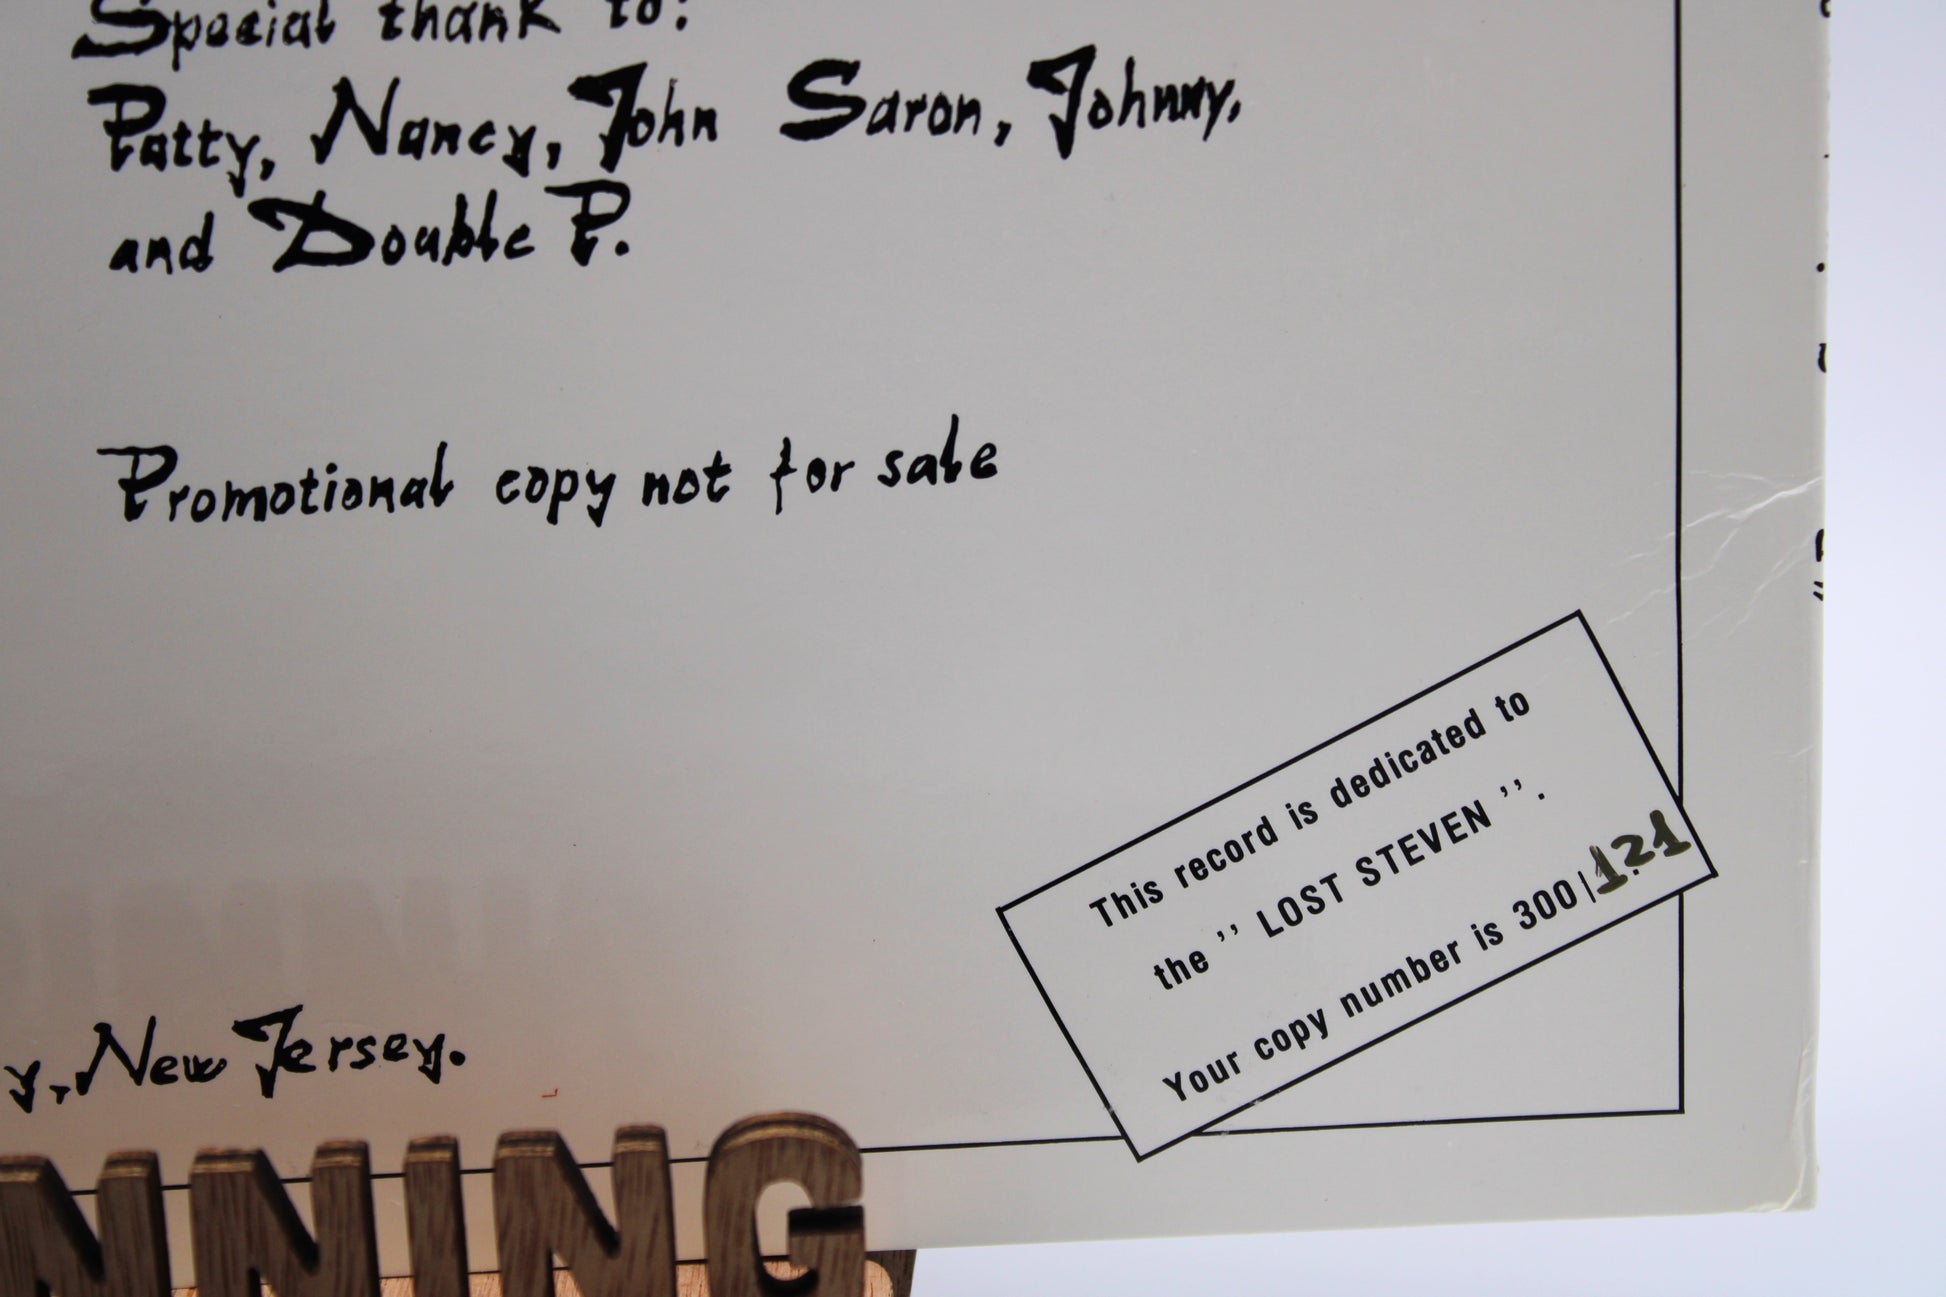 Special thank to:
Patty, Nancy, John Saron, Johnny,
and Double P.
Promotional copy not for sale
This record is dedicated to
the '' LOST STEVEN ''.
Your copy number is 300/121
y, New Jersey.
NNING